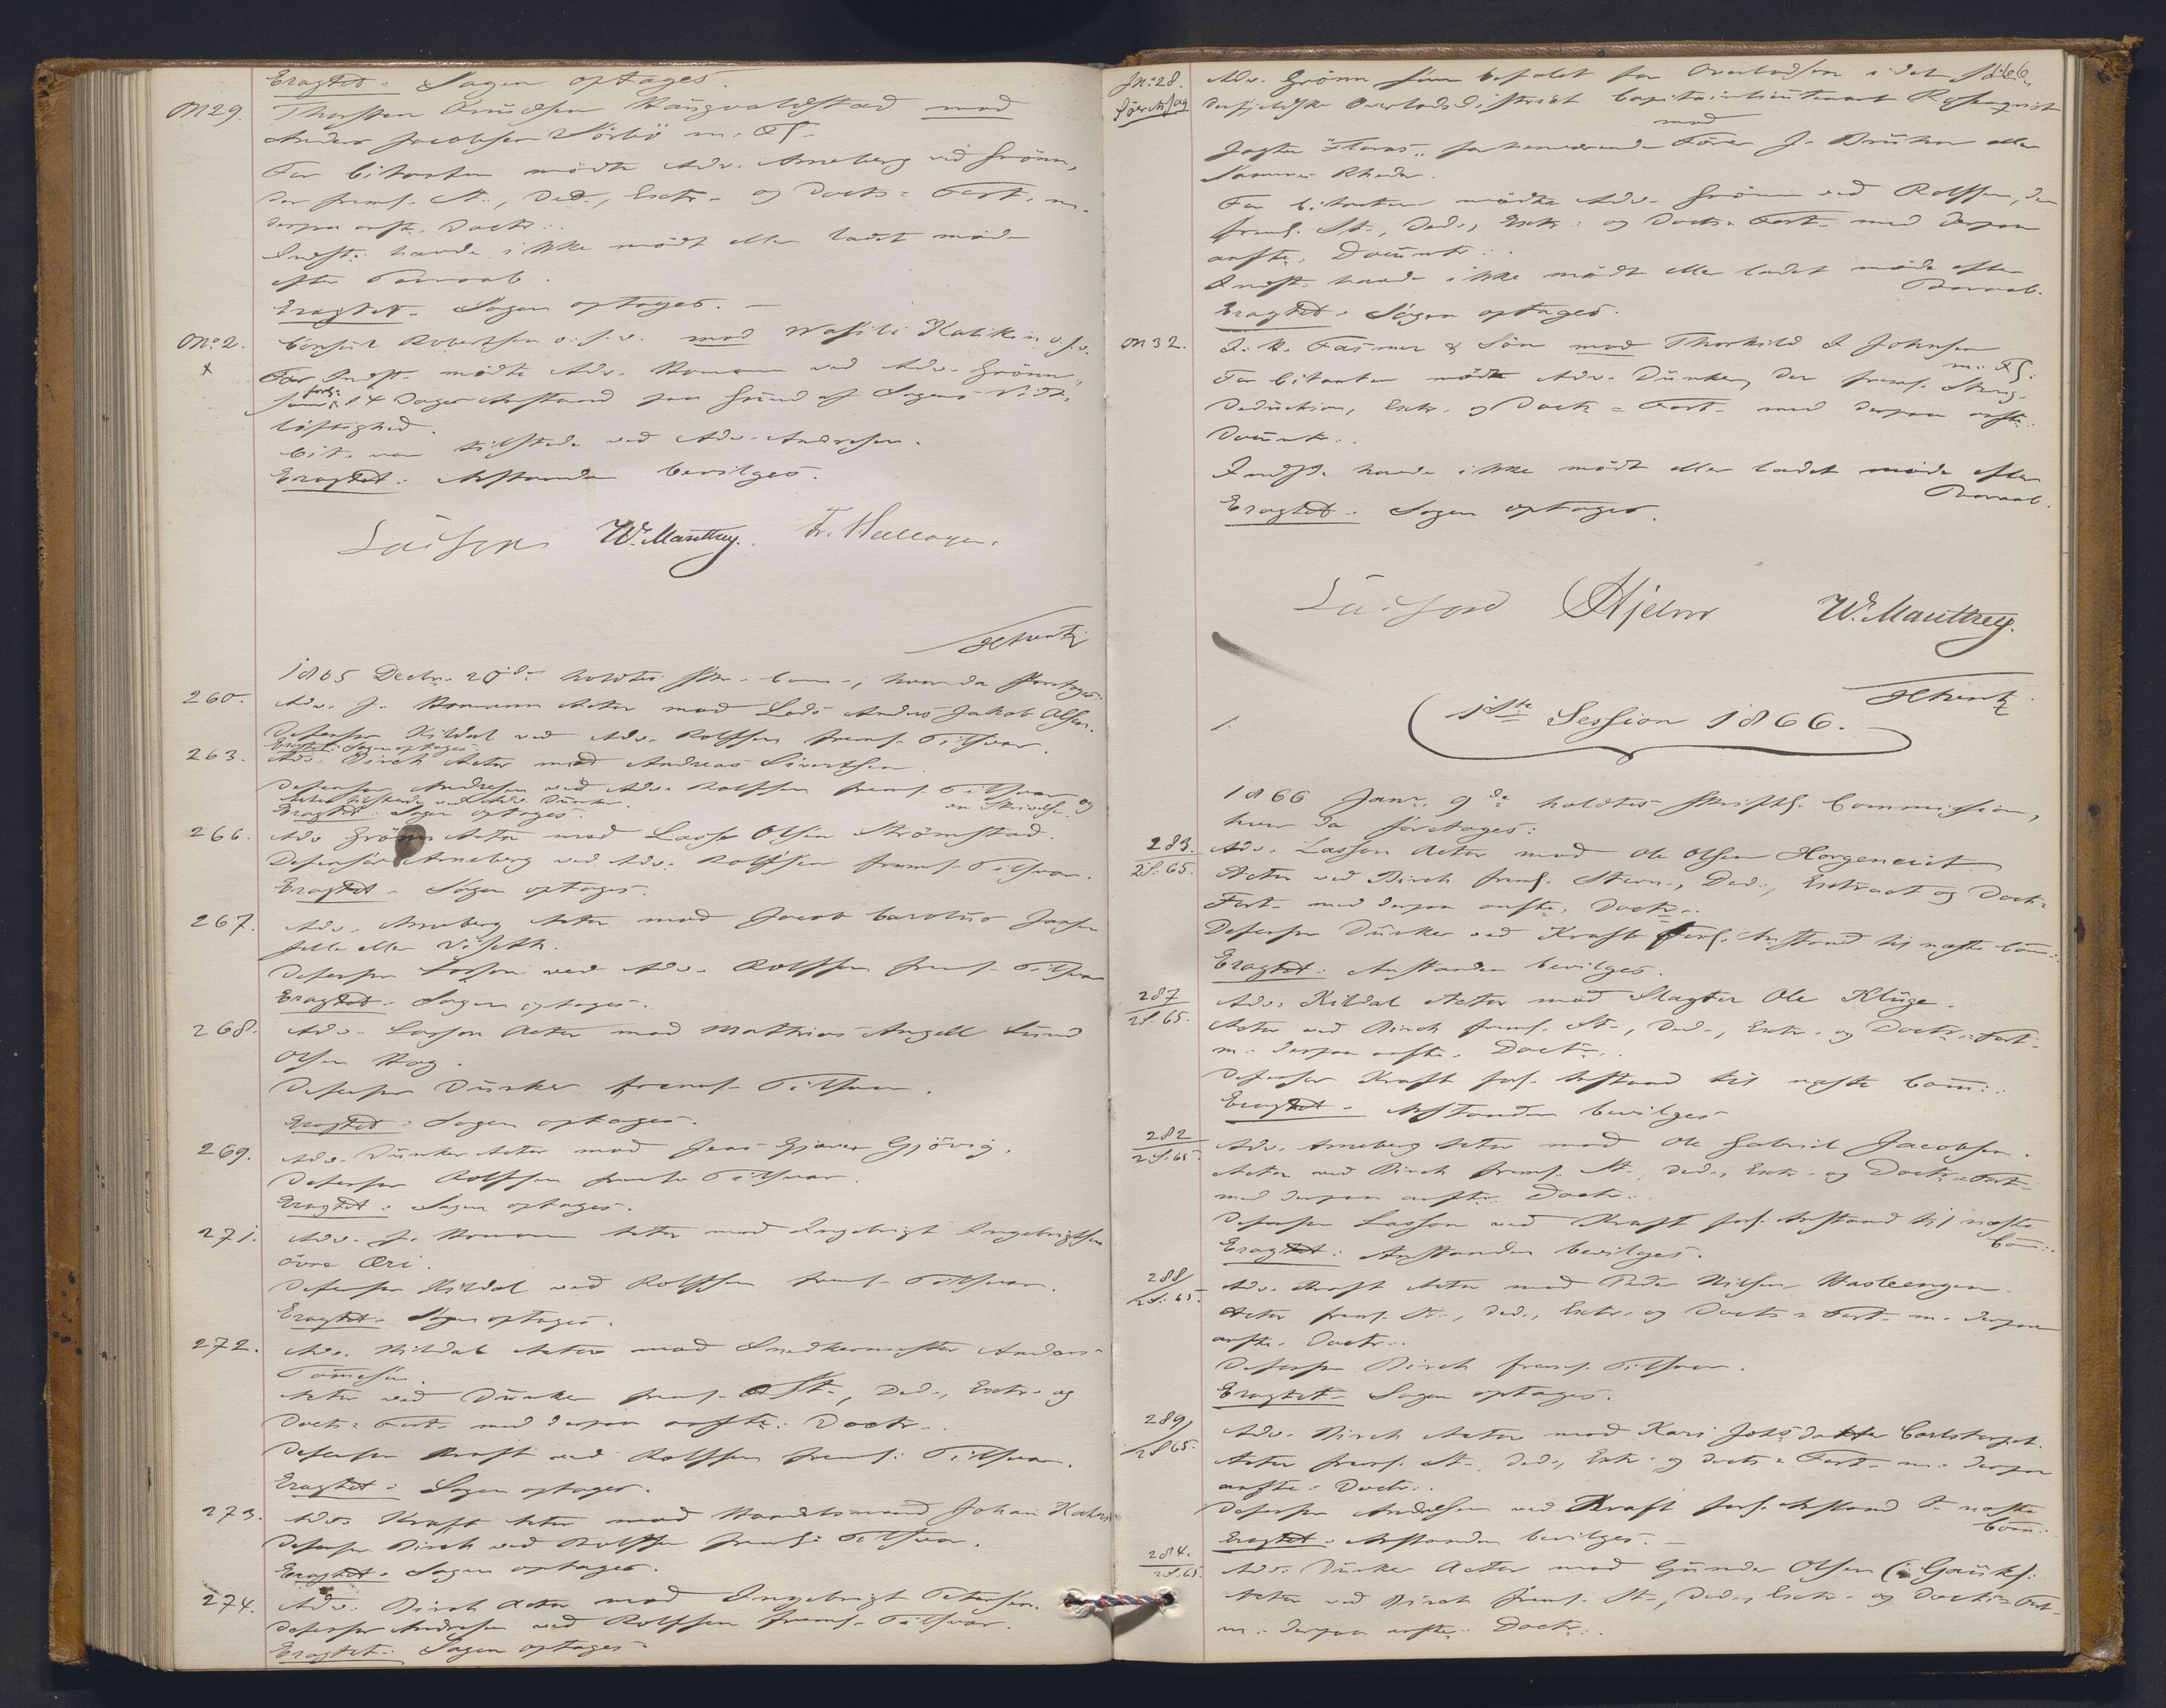 Eragtet: Sagen optages.
N 29. Thorsten Knudsen mod
Anders Jacobsen m. Fl.
For Citanten mödte Adv. Arneberg ved Grönn,
der frems. St., Ded., Extr. og Doctr. Fort. m.
derpaa anfte. Doctr.
Indst. havde ikke mödt eller ladet möde
efter Paaraab.
Eragtet. Sagen optages.
No 2. Consul Robertson o.s.v. mod Wasili Kalikin o.s.v.
For Indst. mödte Adv. Homann ved Adv. Grönn,
som forl. 14 Dages Anstand paa Grund af Sagens Vidt-
löftighed.
Cit. var tilstede ved Adv. Andresen.
Eragtet: Anstanden bevilges.
Lasson W. Manthey. Fr. Hallager.
Schwentz
1865 Decbr. holdtes Skr. Com., hvor da foretoges:
260. Adv. J. Homann Actor mod Lods Anders Jakob Olsen.
Defensor Kildal ved Adv. Rolfsen frems. Tilsvar.
Eragtet: Sagen optages.
263. Adv. Birch Actor mod Andreas Sivertsen.
Defensor Andresen ved Adv. Rolfsen frems. Tilsvar og
en Skrivelse.
Actor tilstede ved Adv. Dunker.
Eragtet: Sagen optages.
266. Adv Grönn Actor mod Lasse Olsen Strömstad.
Defensor Arneberg ved Adv. Rolfsen frems. Tilsvar.
Eragtet. Sagen optages.
267. Adv. Arneberg Actor mod Jacob Carolus Jansen
eller
Defensor Lasson ved Adv. Rolfsen frems. Tilsvar
Eragtet. Sagen optages.
268. Adv. Lasson Actor mod Mathias Angell Lund
Olsen Hog.
Defensor Dunker frems. Tilsvar.
Eragtet: Sagen optages.
269. Adv. Dunker Actor mod Jens Gjövig.
Defensor Rolfsen frems. Tilsvar.
Eragtet: Sagen optages.
271. Adv. J. Homann Actor mod Ingebrigt Ingebrigtsen
övre Öri.
Defensor Kildal ved Rolfsen frems. Tilsvar.
Eragtet. Sagen optages.
272. Adv. Kildal Actor mod Snedkermester Anders
Tömesen.
Actor ved Dunker frems. St., Ded., Extr. og
Doctr. Fort. med derpaa anfte. Doctr.
Defensor Kraft ved Rolfsen frems. Tilsvar.
Eragtet: Sagen optages.
273. Adv. Kraft Actor mod Handelsmand Johan
Defensor Birch ved Rolfsen frems. Tilsvar.
Eragtet. Sagen optages.
274. Adv. Birch Actor mod Ingebrigt Petersen.
Defensor Andresen ved Rolfsen frems. Tilsvar.
Eragtet. Sagen optages
N: 28. Adv. Grönn som befalet for Overlodsen i det
Overlodsdistrict Capitainlieutenant Rosenqvist
mod
Jagten "Flora", forhenværende Förer J. Bruhn eller
sammes Rheder.
For Citanten mödte Adv. Grönn ved Rolfsen, der
frems. St., Ded., Extr. og Doctr. Fort. med derpaa
anfte. Documtr.
Indst. havde ikke mödt eller ladet möde efter
Paaraab.
Eragtet. Sagen optages.
N 32. J. N. Fasmer & Sön mod Thorkild J Johnsen
m. Fl.
For Citanten mödte Adv. Dunker, der frems. Stevng.
Deduction, Extr. og Doctr. Fort. med derpaa anfte.
Documtr.
Indst. havde ikke mödt eller ladet möde efter
Paaraab.
Eragtet. Sagen optages.
Lasson Hjelm W. Manthey.
Schwentz
1ste Session 1866.
1866 Janr. 9de holdtes Skriftl. Commission,
hvor da foretoges:
283. 2S. 65. Adv. Lasson Actor mod Ole Olsen
Actor ved Birch frems. Stevn., Ded., Extract og Doctr.
Fort. med derpaa anfte. Doctr.
Defensor Dunker ved Kraft forl. Anstand til næste Com:
Eragtet: Anstanden bevilges.
287 2S. 65. Adv. Kildal Actor mod Slagter Ole Kluge.
Actor ved Birch frems. St., Ded., Extr. og Doctr. Fort.
m. derpaa anfte. Doctr.
Defensor Kraft forl. Anstand til næste Com:
Eragtet. Anstanden bevilges
282 2S. 65. Adv. Arneberg Actor mod Ole Gabriel Jacobsen.
Actor ved Birch frems. St., Ded., Extr. og Doctr. Fort.
med derpaa anfte. Doctr.
Defensor Lasson ved Kraft forl. Anstand til næste
Com:
Eragtet: Anstanden bevilges.
288/2S. 65. Adv. Kraft Actor mod Peder Nilsen Hasleengen.
Actor frems. St., Ded., Extr. og Doctr. Fort. m. derpaa
anfte. Doctr.
Defensor Birch frems. Tilsvar.
Eragtet. Sagen optages.
289/2S 65. Adv. Birch Actor mod Kari Johsdatter
Actor frems. St., Ded., Extr. og Doctr. Fort. m. derpaa
anfte. Doctr.
Defensor Andresen ved Kraft forl. Anstand t. næste
Com:
Eragtet. Anstanden bevilges.
284. 2S. 65. Adv. Dunker Actor mod Gunder Olsen
Actor ved Birch frems. St., Ded., Extr. og Doctr. Fort.
m. derpaa anfte. Doctr.